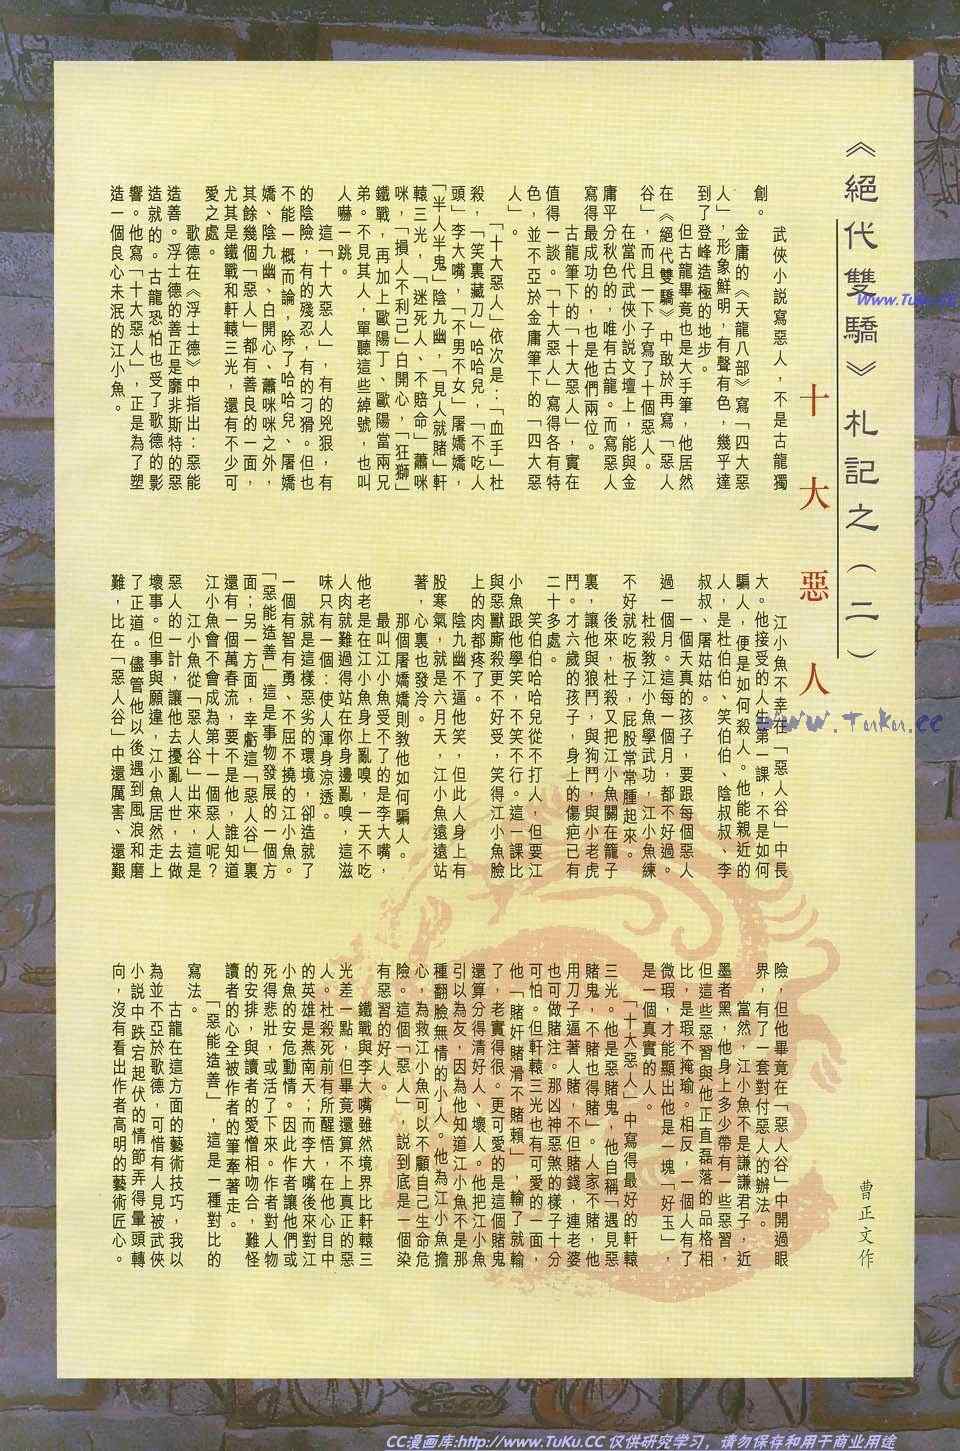 《絕代雙驕》札記之（二）
十大惡人
曹正文作
武俠小說寫惡人，不是古龍獨
創。
金庸的《天龍八部》寫「四大惡
人」，形象鮮明，有聲有色，幾乎達
到了登峰造極的地步。
但古龍畢竟也是大手筆，他居然
在《絕代雙驕》中敢於再寫「惡人
谷」，而且一下子寫了十個惡人。
在當代武俠小說文壇上，能與金
庸平分秋色的，唯有古龍。而寫惡人
寫得最成功的，也是他們兩位。
古龍筆下的「十大惡人」，實在
值得一談。「十大惡人」寫得各有特
色，並不亞於金庸筆下的「四大惡
人」。
「十大惡人」依次是：「血手」杜
殺，「笑裏藏刀」哈哈兒，「不吃人
頭」李大嘴，「不男不女」屠嬌嬌，
「半人半鬼」陰九幽，「見人就賭」軒
轅三光，「迷死人、不賠命」蕭咪
咪，「損人不利己」白開心，「狂獅」
鐵戰，再加上歐陽丁、歐陽當兩兄
弟。不見其人，單聽這些綽號，也叫
人嚇一跳。
這「十大惡人」，有的兇狠，有
的陰險，有的殘忍，有的刁猾。但也
不能一概而論，除了哈哈兒、屠嬌
嬌、陰九幽、白開心、蕭咪咪之外，
其餘幾個「惡人」都有善良的一面，
尤其是鐵戰和軒轅三光，還有不少可
愛之處。
歌德在《浮士德》中指出：惡能
造善。浮士德的善正是靡非斯特的惡
造就的。古龍恐怕也受了歌德的影
響。他寫「十大惡人」，正是為了塑
造一個良心未泯的江小魚。
江小魚不幸在「惡人谷」中長
大。他接受的人生第一課，不是如何
騙人，便是如何殺人。他能親近的
人，是杜伯伯、笑伯伯、陰叔叔、李
叔叔、屠姑姑。
一個天真的孩子，要跟每個惡人
過一個月。這每一個月，都不好過。
杜殺教江小魚學武功，江小魚練
不好就吃板子，屁股常常腫起來。
後來，杜殺又把江小魚關在籠子
裏，讓他與狼鬥，與狗鬥，與小老虎
鬥。才六歲的孩子，身上的傷疤已有
二十多處。
笑伯伯哈哈兒從不打人，但要江
小魚跟他學笑，不笑不行。這一課比
與惡獸廝殺更不好受，笑得江小魚臉
上的肉都疼了。
陰九幽不逼他笑，但此人身上有
股寒氣，就是六月天，江小魚遠遠站
著，心裏也發冷。
那個屠嬌嬌則教他如何騙人。
最叫江小魚受不了的是李大嘴，
他老是在江小魚身上亂嗅，一天不吃
人肉就難過得站在你身邊亂嗅，這滋
味只有一個：使人渾身涼透。
就是這樣惡劣的環境，卻造就了
一個有智有勇、不屈不撓的江小魚。
「惡能造善」，這是事物發展的一個方
面；另一方面，幸虧這「惡人谷」裏
還有一個萬春流，要不是他，誰知道
江小魚會不會成為第十一個惡人呢？
江小魚從「惡人谷」出來，這是
惡人的一計，讓他去擾亂人世，去做
壞事。但事與願違，江小魚居然走上
了正道。儘管他以後遇到風浪和磨
難，比在「惡人谷」中還厲害、還艱
險，但他畢竟在「惡人谷」中開過眼
界，有了一套對付惡人的辦法。
當然，江小魚不是謙謙君子，近
墨者黑，他身上多少帶有一些惡習，
但這些惡習與他正直磊落的品格相
比，是瑕不掩瑜。相反，一個人有了
微瑕，才能顯出他是一塊「好玉」，
是一個真實的人。
「十大惡人」中寫得最好的軒轅
三光。他是惡賭鬼，他自稱「遇見惡
賭鬼，不賭也得賭」。人家不賭，他
用刀子逼著人賭，不但賭錢，連老婆
也可做賭注。那凶神惡煞的樣子十分
可怕。但軒轅三光也有可愛的一面，
他「賭奸賭滑不賭賴」，輸了就輸
了，老實得很。更可愛的是這個賭鬼
還算分得清好人、壞人。他把江小魚
引以為友，因為他知道江小魚不是那
種翻臉無情的小人。他為江小魚擔
心，為救江小魚可以不顧自己生命危
險。這個「惡人」，說到底是一個染
有惡習的好人。
鐵戰與李大嘴雖然境界比軒轅三
光差一點，但畢竟還算不上真正的惡
人。杜殺死前有所醒悟，在他心目中
的英雄是燕南天；而李大嘴後來對江
小魚的安危動情。因此作者讓他們或
死得悲壯，或活了下來。作者對人物
的安排，與讀者的愛憎相吻合，難怪
讀者的心全被作者的筆牽著走。
「惡能造善」，這是一種對比的
寫法。
古龍在這方面的藝術技巧，我以
為並不亞於歌德，可惜有人見被武俠
小說中跌宕起伏的情節弄得暈頭轉
向，沒有看出作者高明的藝術匠心。
www.Tuku.cc
www.Tuku.cc
CC漫画库:http://www.TuKu.CC 仅供研究学习，请勿保存和用于商业用途